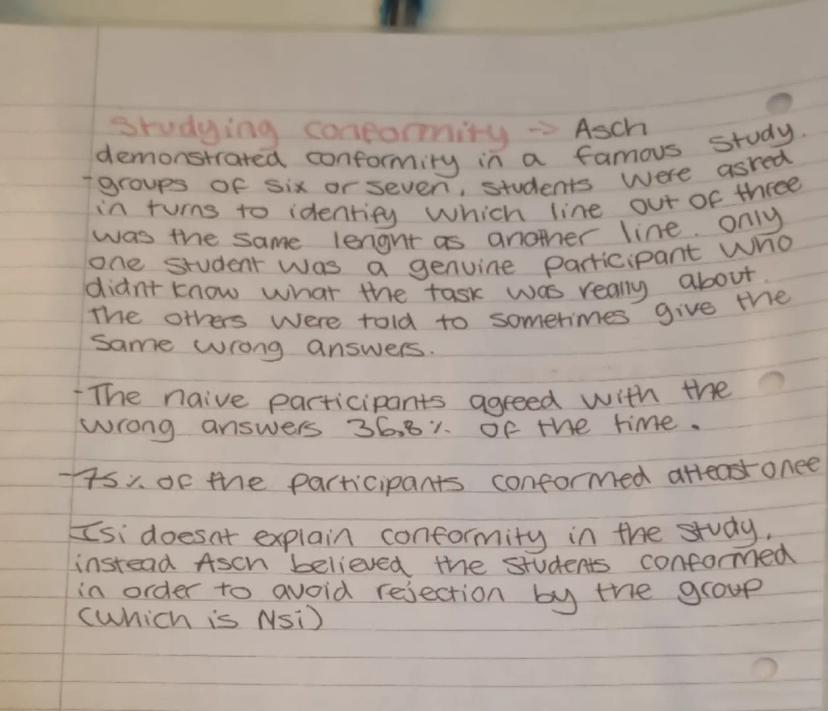 Studying conformity -> Asch
demonstrated conformity in a famous study.
-groups of six or seven, students were asked
in turns to identify which line out of three
was the same lenght as another line. only
one student was a genuine participant who
didnt know what the task was really about.
The others were told to sometimes give the
same wrong answers.
-The naive participants agreed with the
wrong answers 36,8% of the time.
-75% of the participants conformed atleast once
Isi doesnt explain conformity in the study,
instead Asch believed the students conformed
in order to avoid rejection by the group
(which is Nsi)